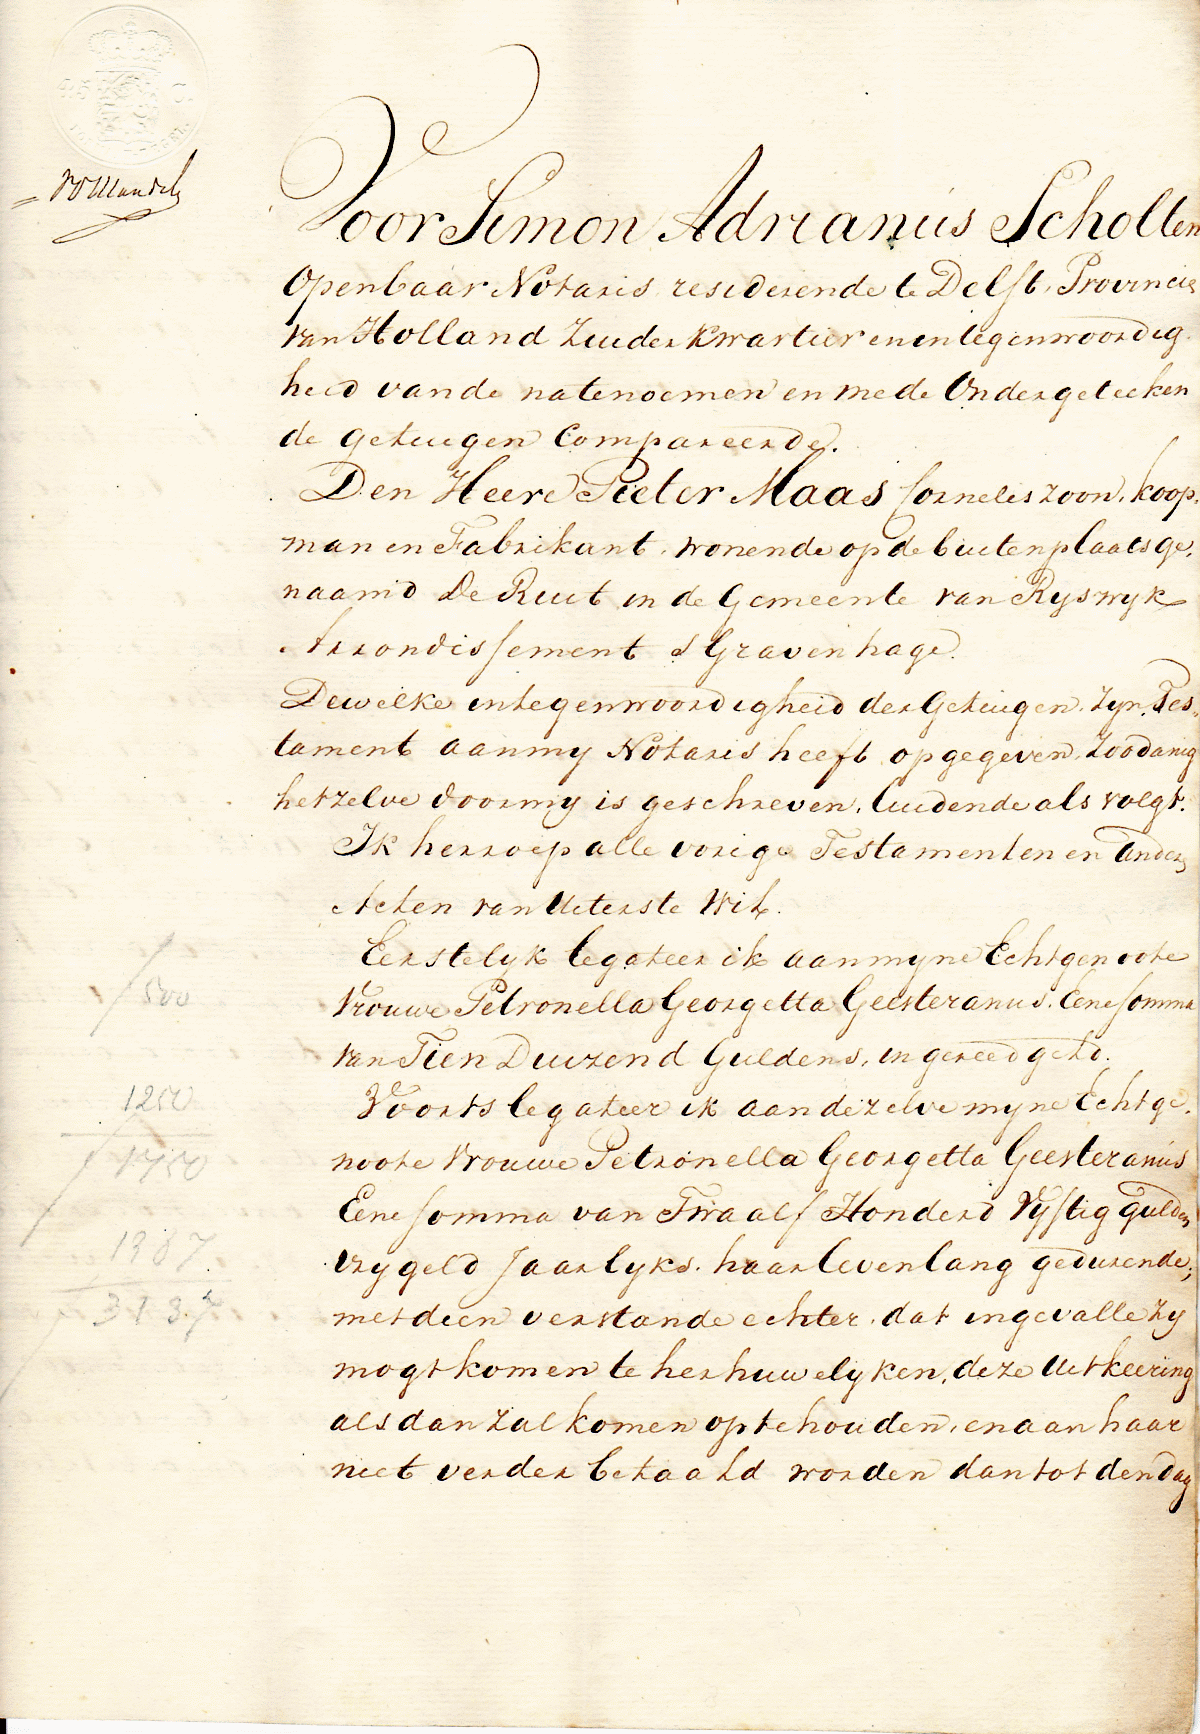 Voor Simon Adrianus Scholten
Openbaar Notaris resideerende te Delft, Provincie
van Holland Zuider kwartier en in tegenwoordig
heid van de natenoemen en mede Ondergeteeken
de getuigen Compareerde.
Den Heere Pieter Maas Corneliszoon, koop,
man en Fabrikant, wonende op de buitenplaats ge,
naamd De Ruit in de Gemeente van Ryswyk
Arrondissement s Gravenhage.
Dewelke in tegenwoordigheid der Getuigen, zyn Tes,
tament aan my Notaris heeft opgegeven, zoodanig
hetzelve door my is geschreven, luidende als volgt.
Ik herroep alle vorige Testamenten en andere
Acten van Uiterste Wil.
Eerstelyk legateer ik aan myne Echtgenoote
Vrouwe Petronella Georgetta Geesteranus, Eene somma
van Tien Duizend Guldens, in gereed geld.
Voorts legateer ik aan dezelve myne Echtge,
noote Vrouwe Petronella Georgetta Geesteranus
Eene somma van Twaalf Honderd Vyftig gulden
vry geld Jaarlyks, haar leven lang gedurende;
met dien verstande echter, dat ingevalle zy
mogt komen te herhuwelyken, deze Uitkeering
als dan zal komen op te houden, en aan haar
niet verder betaald worden dan tot den dag
500
1250
1750
1387
3137